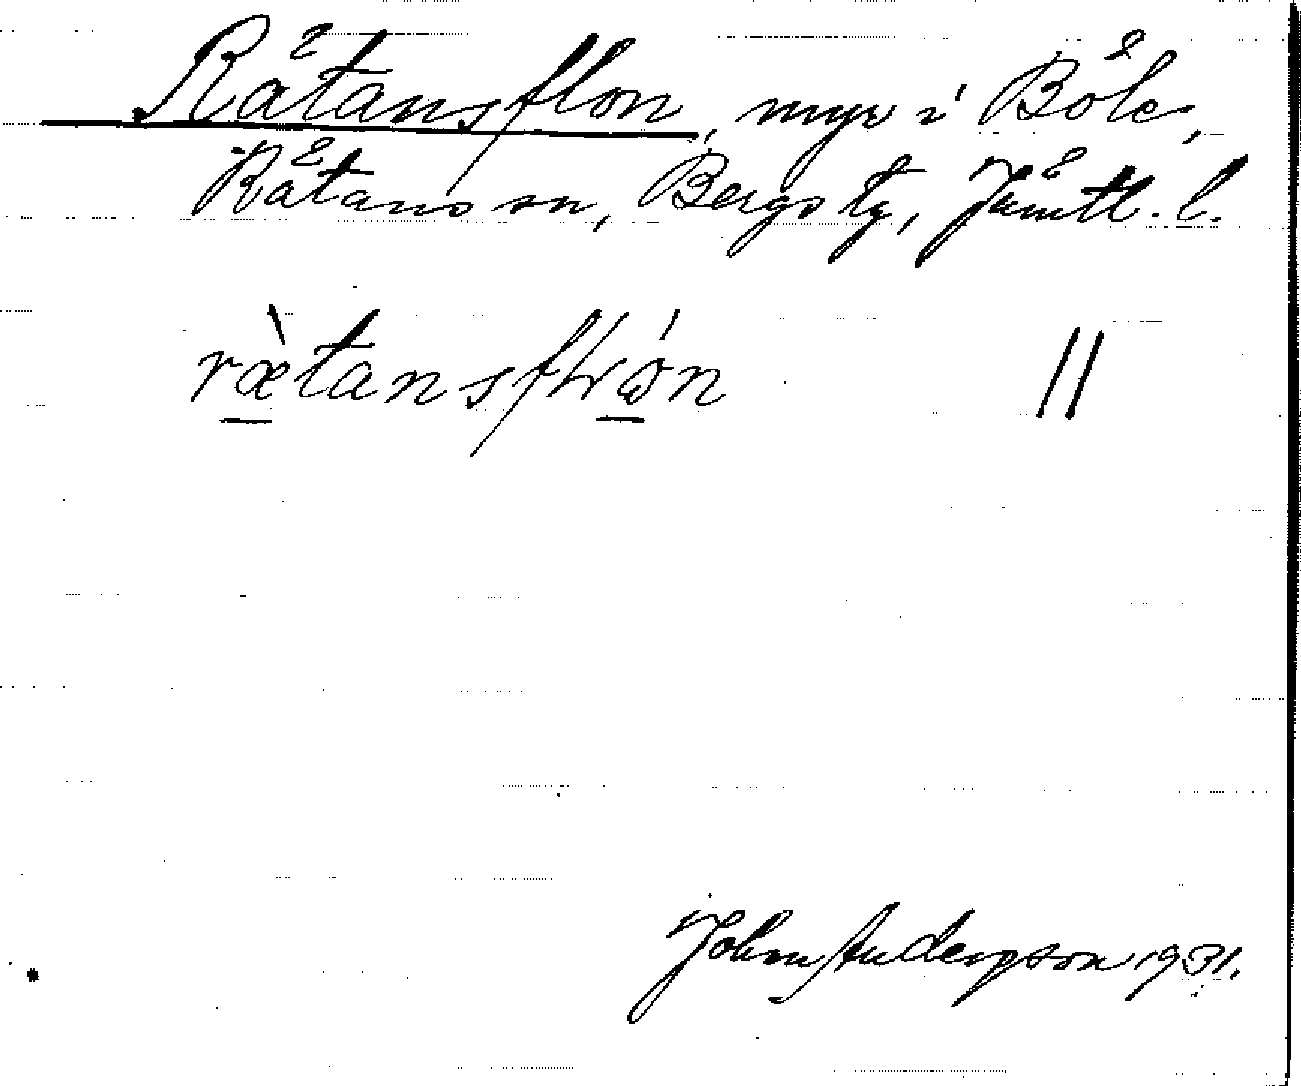 Rätansflon, myr i Böle,
Rätans sn, Bergs tg, Jämtl. l.
ræ̀tansfɫɷ́n //
John Andersson 1931.